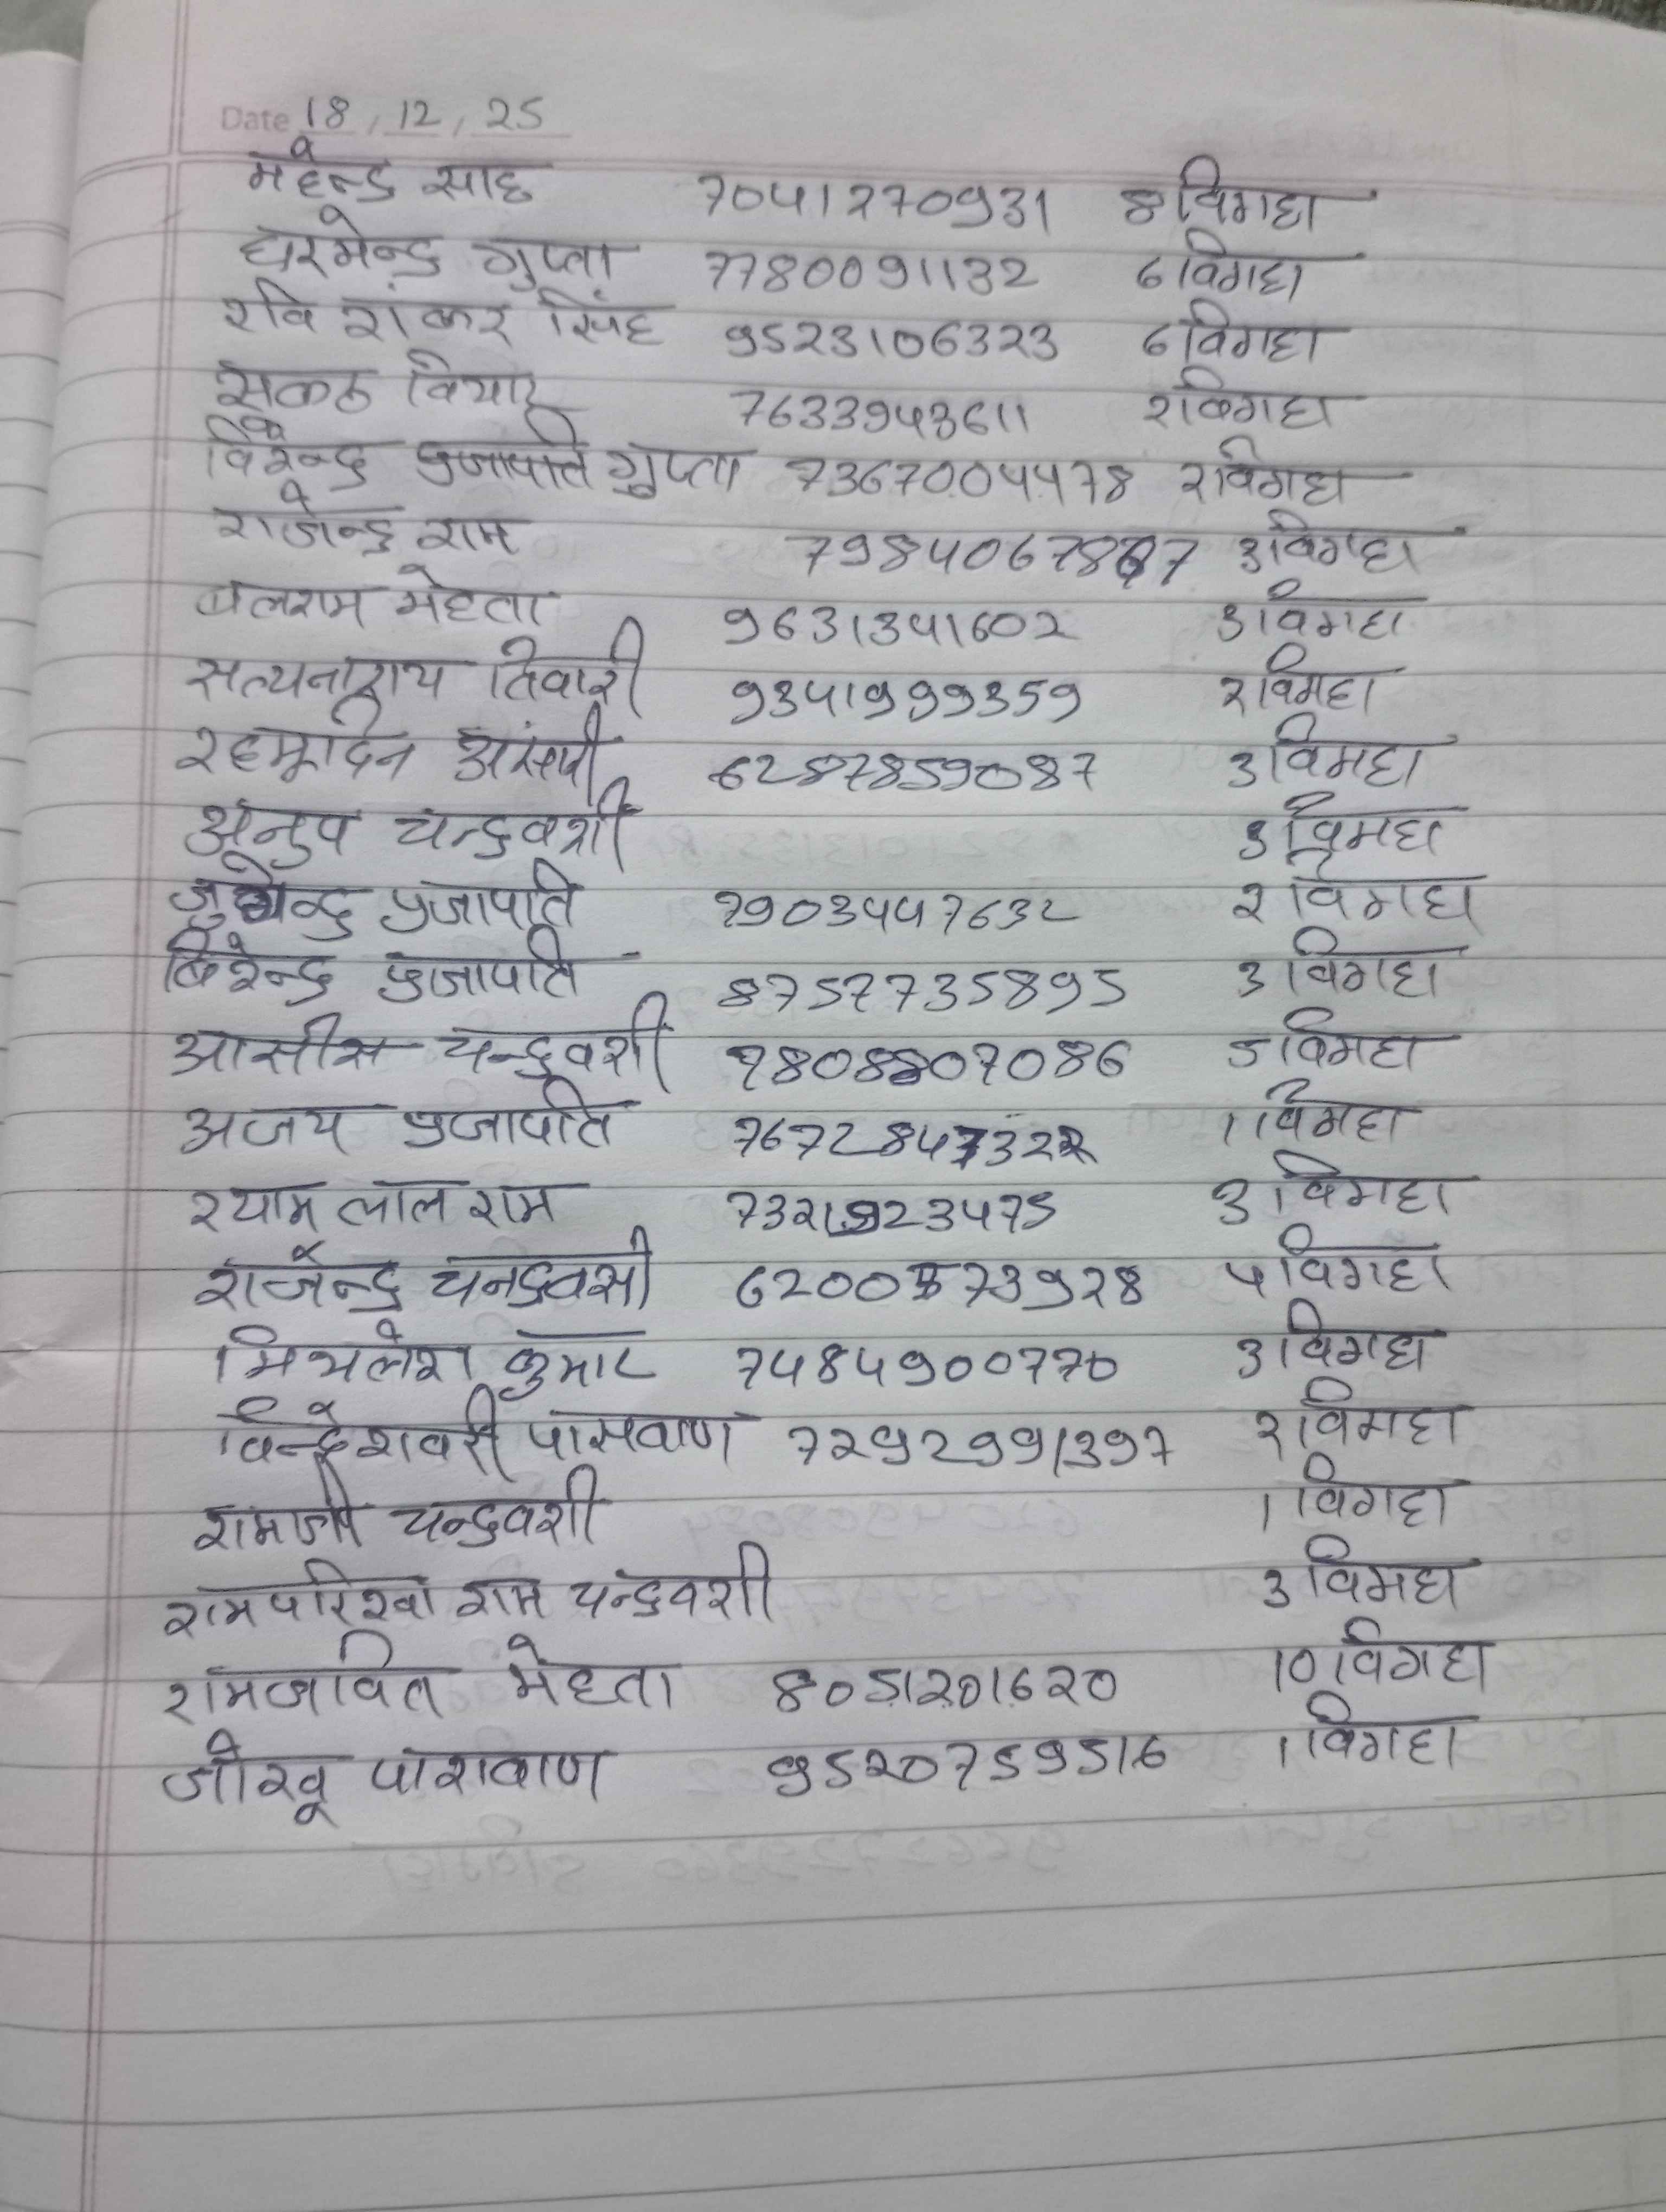 Date 18, 12, 25
महेन्द्र साह 7041270931 8 विगहा
धरमेन्द्र गुप्ता 7780091132 6 विगहा
रवि शंकर सिंह 9523106323 6 विगहा
सकल वियार 7633943611 2 विगहा
विरेन्द्र प्रजापति गुप्ता 7367004478 2 विगहा
राजेन्द्र राम 7984067867 3 विगहा
बलराम मेहता 9631341602 3 विगहा
सत्यनाराय तिवारी 9341999359 2 विगहा
रहमूदिन अंसारी 6287859087 3 विगहा
अनुप चन्द्रवशी 3 विगहा
प्रजापति 7903447632 2 विगहा
बिरेन्द्र प्रजापति 8757735895 3 विगहा
आसीस चन्द्रवशी 7808807086 5 विगहा
अजय प्रजापति 7672847322 1 विगहा
श्याम लाल राम 7321923475 3 विगहा
राजेन्द्र चनद्रवसी 6200573928 5 विगहा
मिथलेश कुमार 7484900770 3 विगहा
विन्देशवरी पासवाण 7292991397 2 विगहा
रामजी चन्द्रवशी 1 विगहा
रामपरिखा राम चन्द्रवशी 3 विगहा
रामजावित मेहता 8051201620 10 विगहा
जोखू पाशवाण 9520759516 1 विगहा